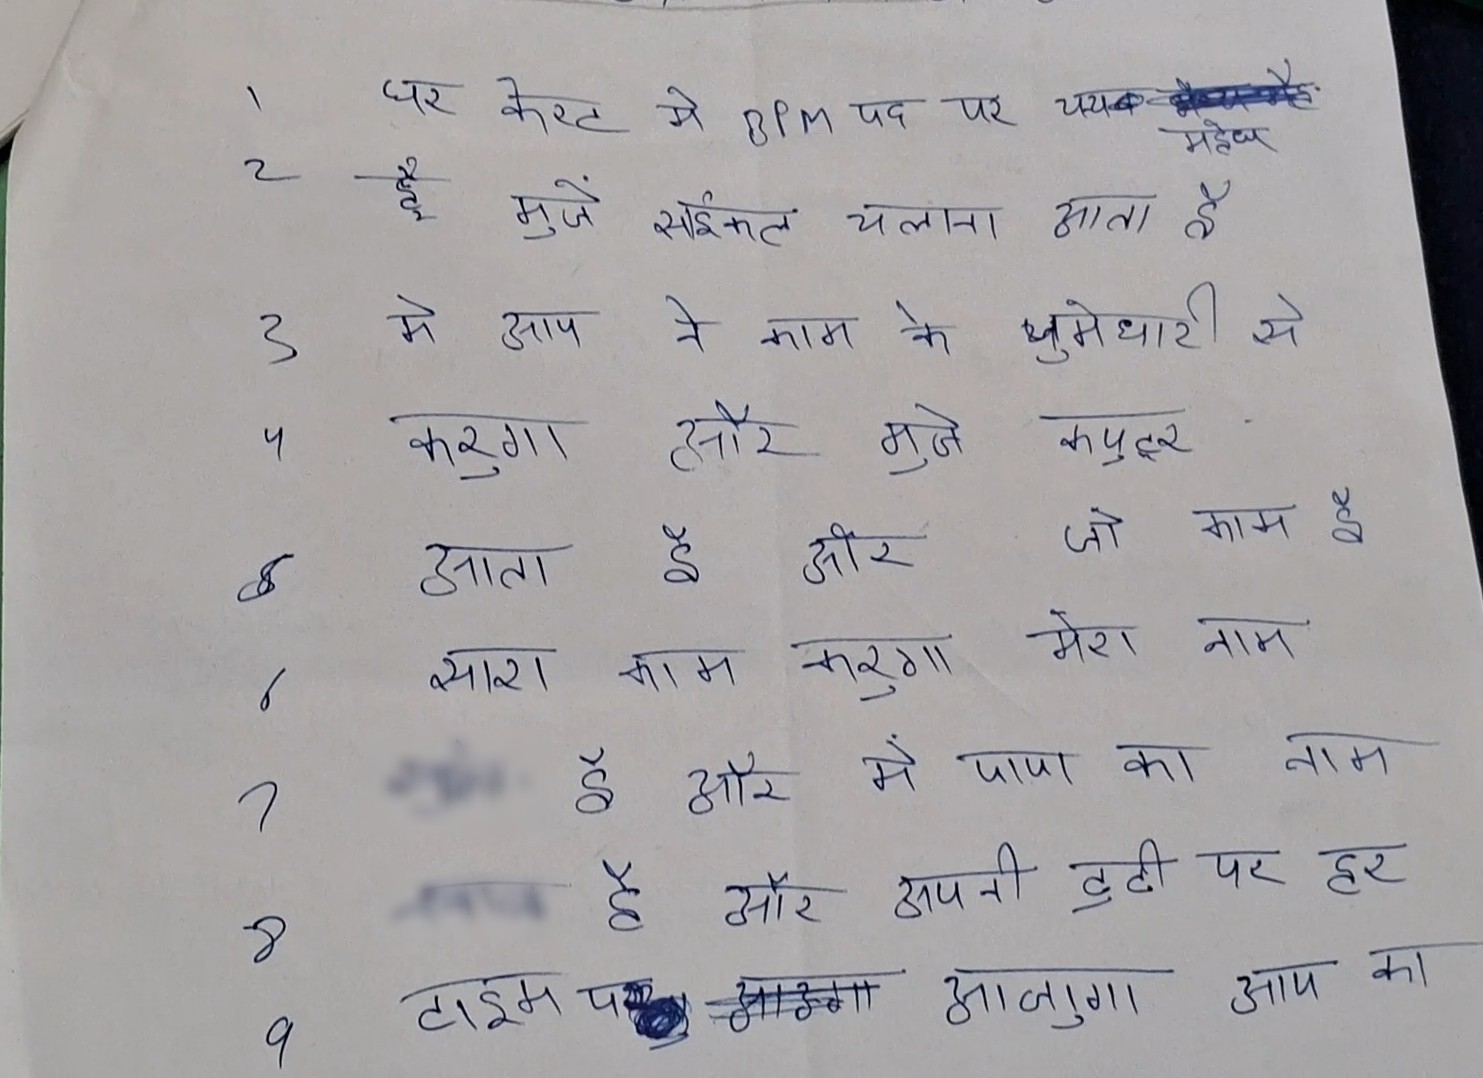 1 घर केरट मे BPM पद पर चयक
2 है मुजें सईकल चलाना आता है
3 मे आप ने काम के ़जुमेधारी से
4 करुगा और मुजे कपुटर
5 आता है और जो काम है
6 सारा काम करुगा मेरा नाम
7 है और में पापा का नाम
8 है और अपनी टुटी पर हर
9 टाइम पर आजुगा आप का